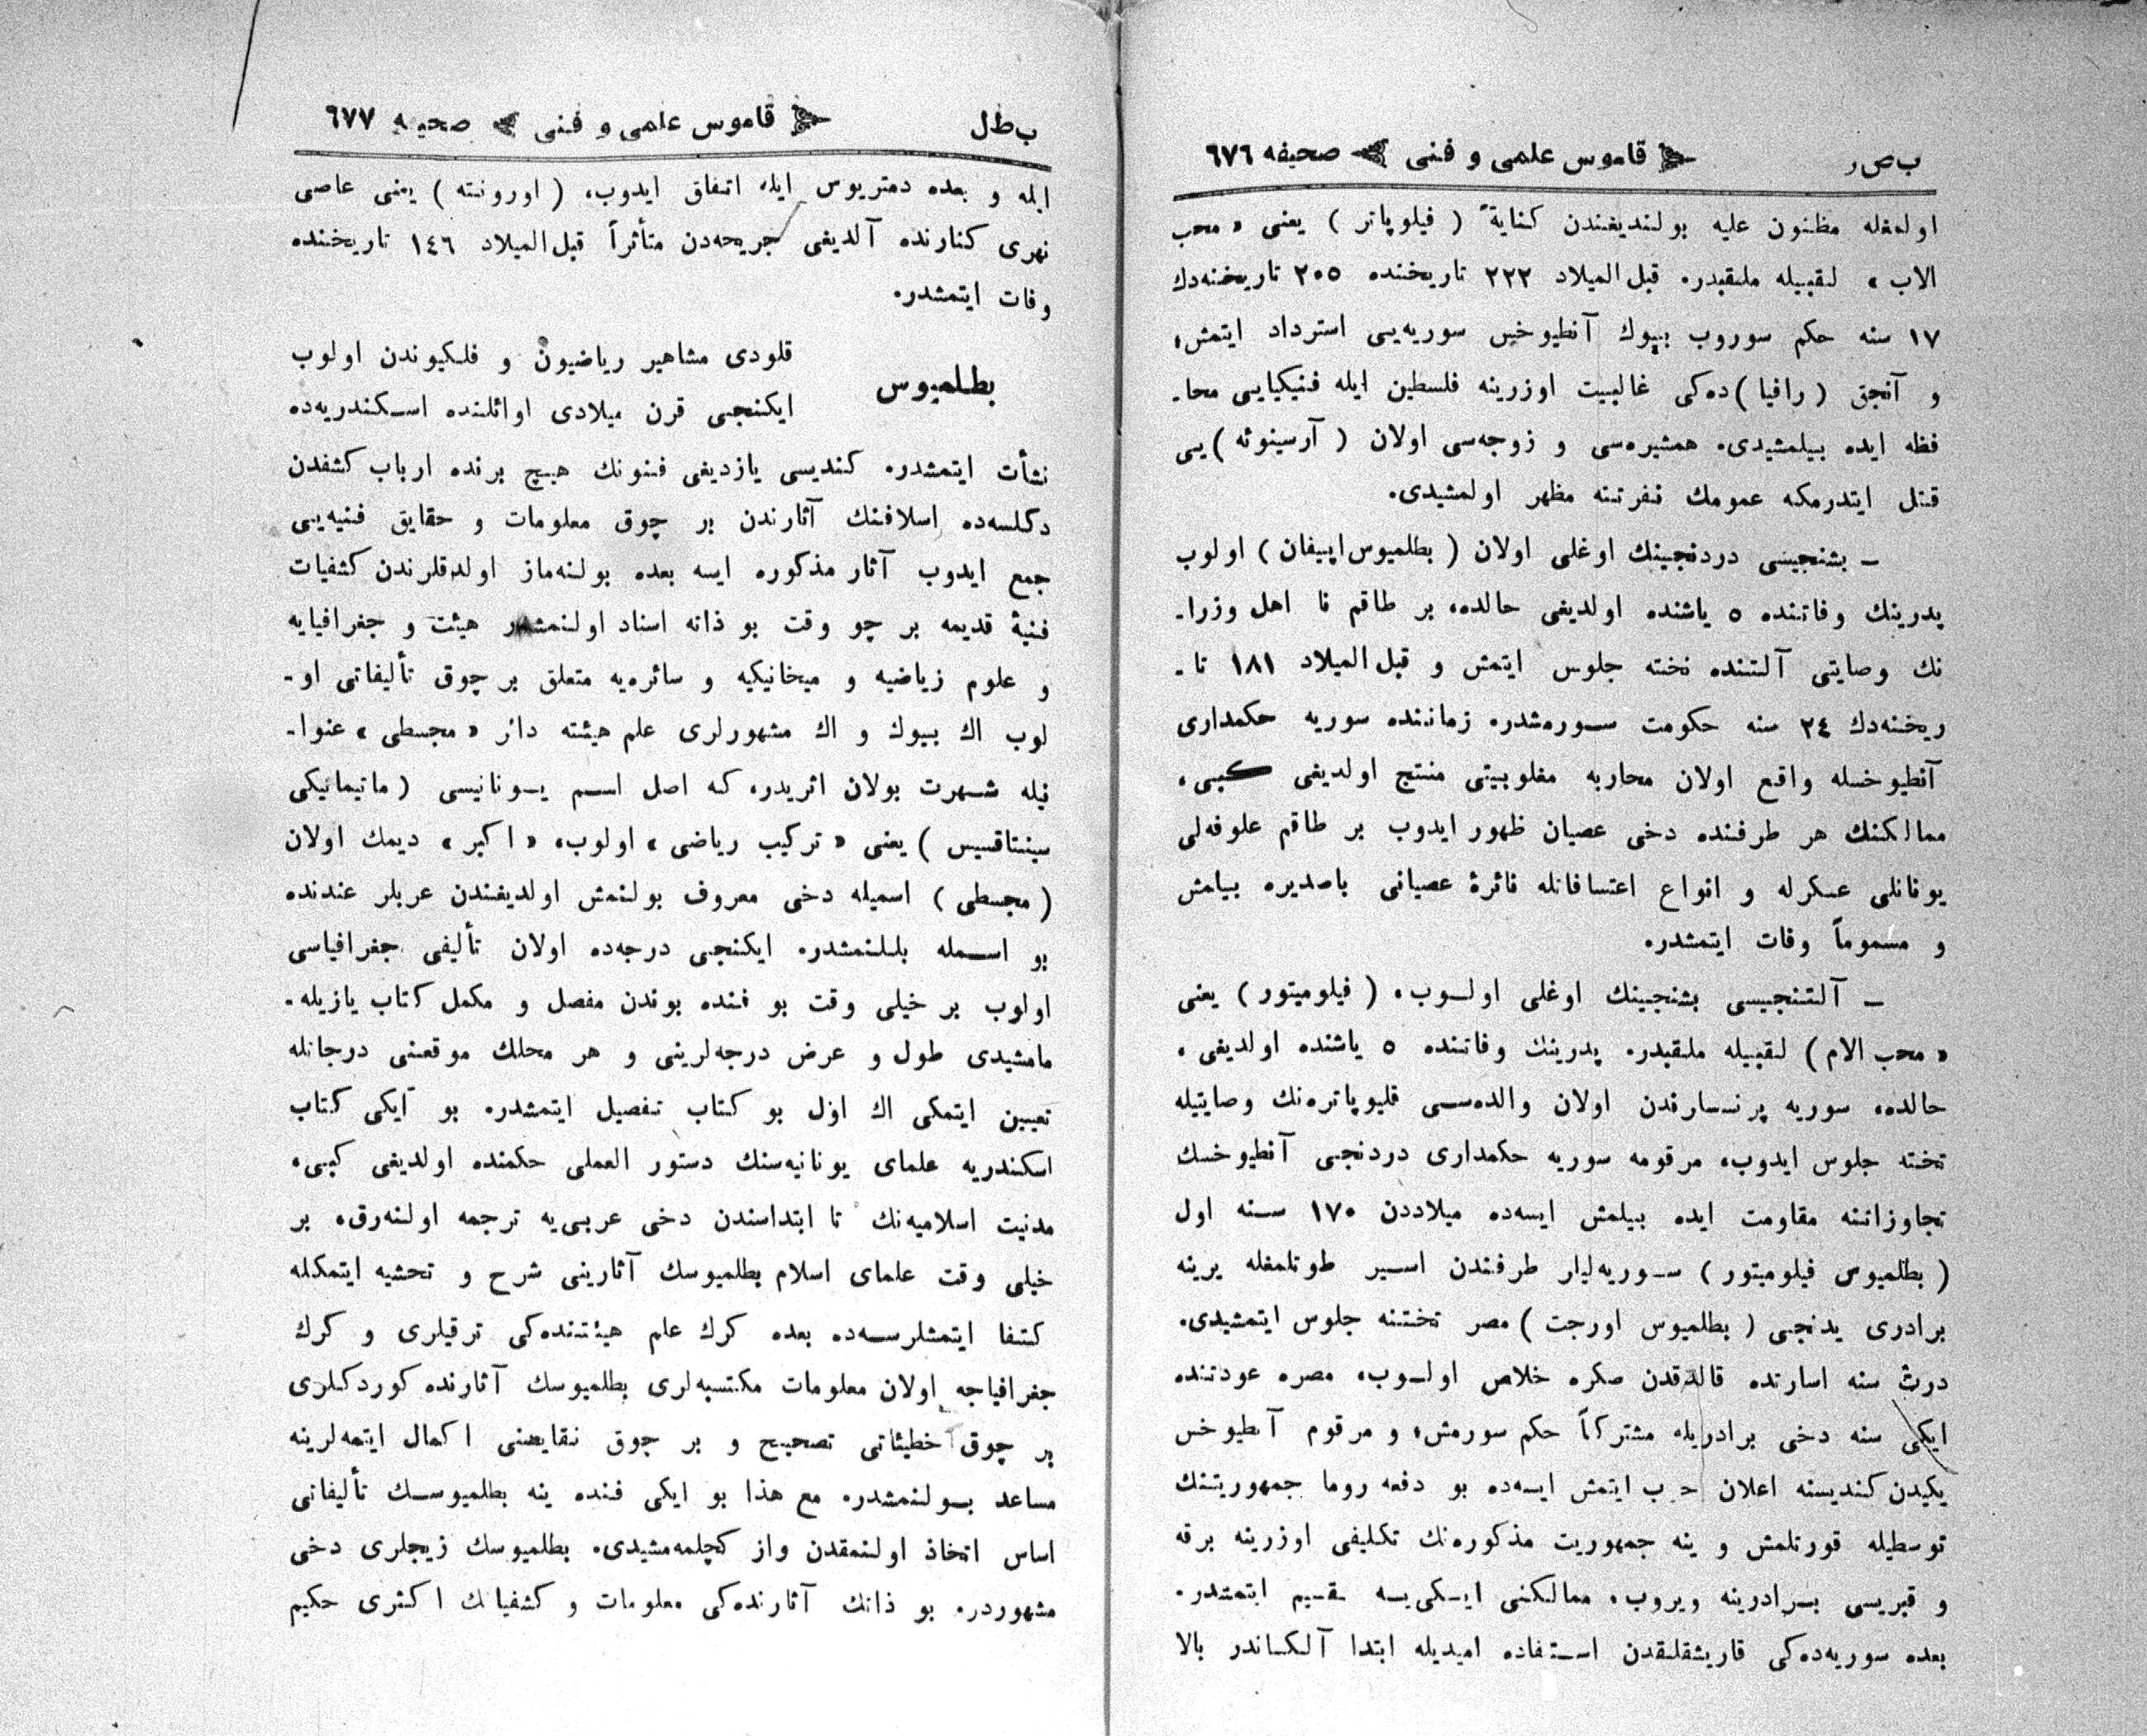 ب ص ر
قاموس علمی و فنی
صحیفه ٦٧٦
اولمغله مظنون علیه بولندیغندن كنایةً ( فیلوپاتر ) یعنی « محب
الاب » لقبیله ملقبدر. قبل المیلاد ٢٢٢ تاریخنده ٢٠٥ تاریخنه‌دك
١٧ سنه حكم سوروب بیوك آنطیوخس سوریه‌یی استرداد ایتمش،
و آنجق ( رافیا )ده‌كی غالبیت اوزرینه فلسطین ایله فنیكیایی محا-
فظه ایده بیلمشیدی. همشیره‌سی و زوجه‌سی اولان ( آرسینوئه )یی
قتل ایتدرمكه عمومك نفرتنه مظهر اولمشیدی.
– بشنجیسی دردنجینك اوغلی اولان ( بطلمیوس اپیفان ) اولوب
پدرینك وفاتنده ٥ یاشنده اولدیغی حالده، بر طاقم نا اهل وزرا-
نك وصایتی آلتنده تخته جلوس ایتمش و قبل المیلاد ١٨١ تا-
ریخنه‌دك ٢٤ سنه حكومت سورمشدر. زماننده سوریه حكمداری
آنطیوخسله واقع اولان محاربه مغلوبیتی منتج اولدیغی كبی،
ممالكنك هر طرفنده دخی عصیان ظهور ایدوب بر طاقم علوفه‌لی
یونانلی عسكرله و انواع اعتسافاتله نائرهٔ عصیانی باصدیره بیلمش
و مسموماً وفات ایتمشدر.
– آلتنجیسی بشنجینك اوغلی اولوب، ( فیلومیتور ) یعنی
« محب الام ) لقبیله ملقبدر. پدرینك وفاتنده ٥ یاشنده اولدیغی
حالده، سوریه پرنسلرندن اولان والده‌سی قلیوپاتره‌نك وصایتیله
تخته جلوس ایدوب، مرقومه سوریه حكمداری دردنجی آنطیوخسك
تجاوزاتنه مقاومت ایده بیلمش ایسه‌ده میلاددن ١٧٠ سنه اول
( بطلمیوس فیلومیتور ) سوریه‌لیلر طرفندن اسیر طوتلمغله یرینه
برادری یدنجی ( بطلمیوس اورجت ) مصر تختنه جلوس ایتمشیدی.
درت سنه اسارتده قالدقدن صكره خلاص اولوب، مصره عودتنده
ایكی سنه دخی برادریله مشتركاً حكم سورمش، و مرقوم آنطیوخس
یكیدن كندیسنه اعلان حرب ایتمش ایسه‌ده بو دفعه روما جمهوریتنك
توسطیله قورتلمش و ینه جمهوریت مذكوره‌نك تكلیفی اوزرینه برقه
و قبریسی برادرینه ویروب، ممالكنی ایكی‌یه تقسیم ایتمشدر.
بعده سوریه‌ده‌كی قاریشقلقدن استفاده امیدیله ابتدا آلكساندر بالا
ب ط ل
قاموس علمی و فنی
صحیفه ٦٧٧
ایله و بعده دمتریوس ایله اتفاق ایدوب، ( اورونته ) یعنی عاصی
نهری كنارنده آلدیغی جریحه‌دن متأثراً قبل المیلاد ١٤٦ تاریخنده
وفات ایتمشدر.
بطلمیوس
قلودی مشاهیر ریاضیون و فلكیوندن اولوب
ایكنجی قرن میلادی اوائلنده اسكندریه‌ده
نشأت ایتمشدر. كندیسی یازدیغی فنونك هیچ برنده ارباب كشفدن
دكلسه‌ده اسلافنك آثارندن بر چوق معلومات و حقایق فنیه‌یی
جمع ایدوب آثار مذكوره ایسه بعده بولنه‌ماز اولدقلرندن كشفیات
فنیهٔ قدیمه بر چو وقت بو ذاته اسناد اولنمشدر هیئت و جغرافیایه
و علوم ریاضیه و میخانیكیه و سائره‌یه متعلق بر چوق تألیفاتی او-
لوب اك بیوك و اك مشهورلری علم هیئته دائر « مجسطی » عنوا-
نیله شهرت بولان اثریدر، كه اصل اسم یونانیسی ( ماتیماتیكی
سینتاقسیس ) یعنی « تركیب ریاضی » اولوب، « اكبر » دیمك اولان
( مجسطی ) اسمیله دخی معروف بولنمش اولدیغندن عربلر عندنده
بو اسمله بلنلمشدر. ایكنجی درجه‌ده اولان تألیفی جغرافیاسی
اولوب بر خیلی وقت بو فنده بوندن مفصل و مكمل كتاب یازیله-
مامشیدی طول و عرض درجه‌لرینی و هر محلك موقعنی درجاتله
تعیین ایتمكی اك اوّل بو كتاب تفصیل ایتمشدر. بو ایكی كتاب
اسكندریه علمای یونانیه‌سنك دستور العملی حكمنده اولدیغی كبی،
مدنیت اسلامیه‌نك تا ابتداسندن دخی عربی‌یه ترجمه اولنه‌رق، بر
خیلی وقت علمای اسلام بطلمیوسك آثارینی شرح و تحشیه ایتمكله
كتفا ایتمشلرسه‌ده بعده كرك علم هیئتنده‌كی ترقیلری و كرك
جغرافیاجه اولان معلومات مكتسبه‌لری بطلمیوسك آثارنده كوردكلری
بر چوق خطیئاتی تصحیح و بر چوق نقایصنی اكمال ایتمه‌لرینه
مساعد بولنمشدر. مع هذا بو ایكی فنده ینه بطلمیوسك تألیفاتی
اساس اتخاذ اولنمقدن واز كچلمه‌مشیدی. بطلمیوسك زیجلری دخی
مشهوردر. بو ذاتك آثارنده‌كی معلومات و كشفیاتك اكثری حكیم